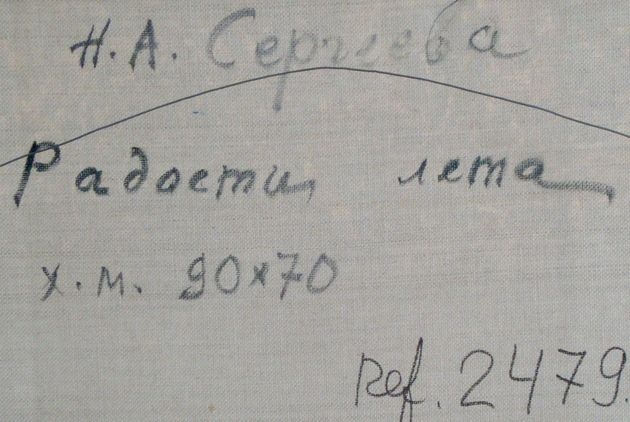 Н. А. Сергеева
Радости лета
х. м. 90×70
Ref. 2479.